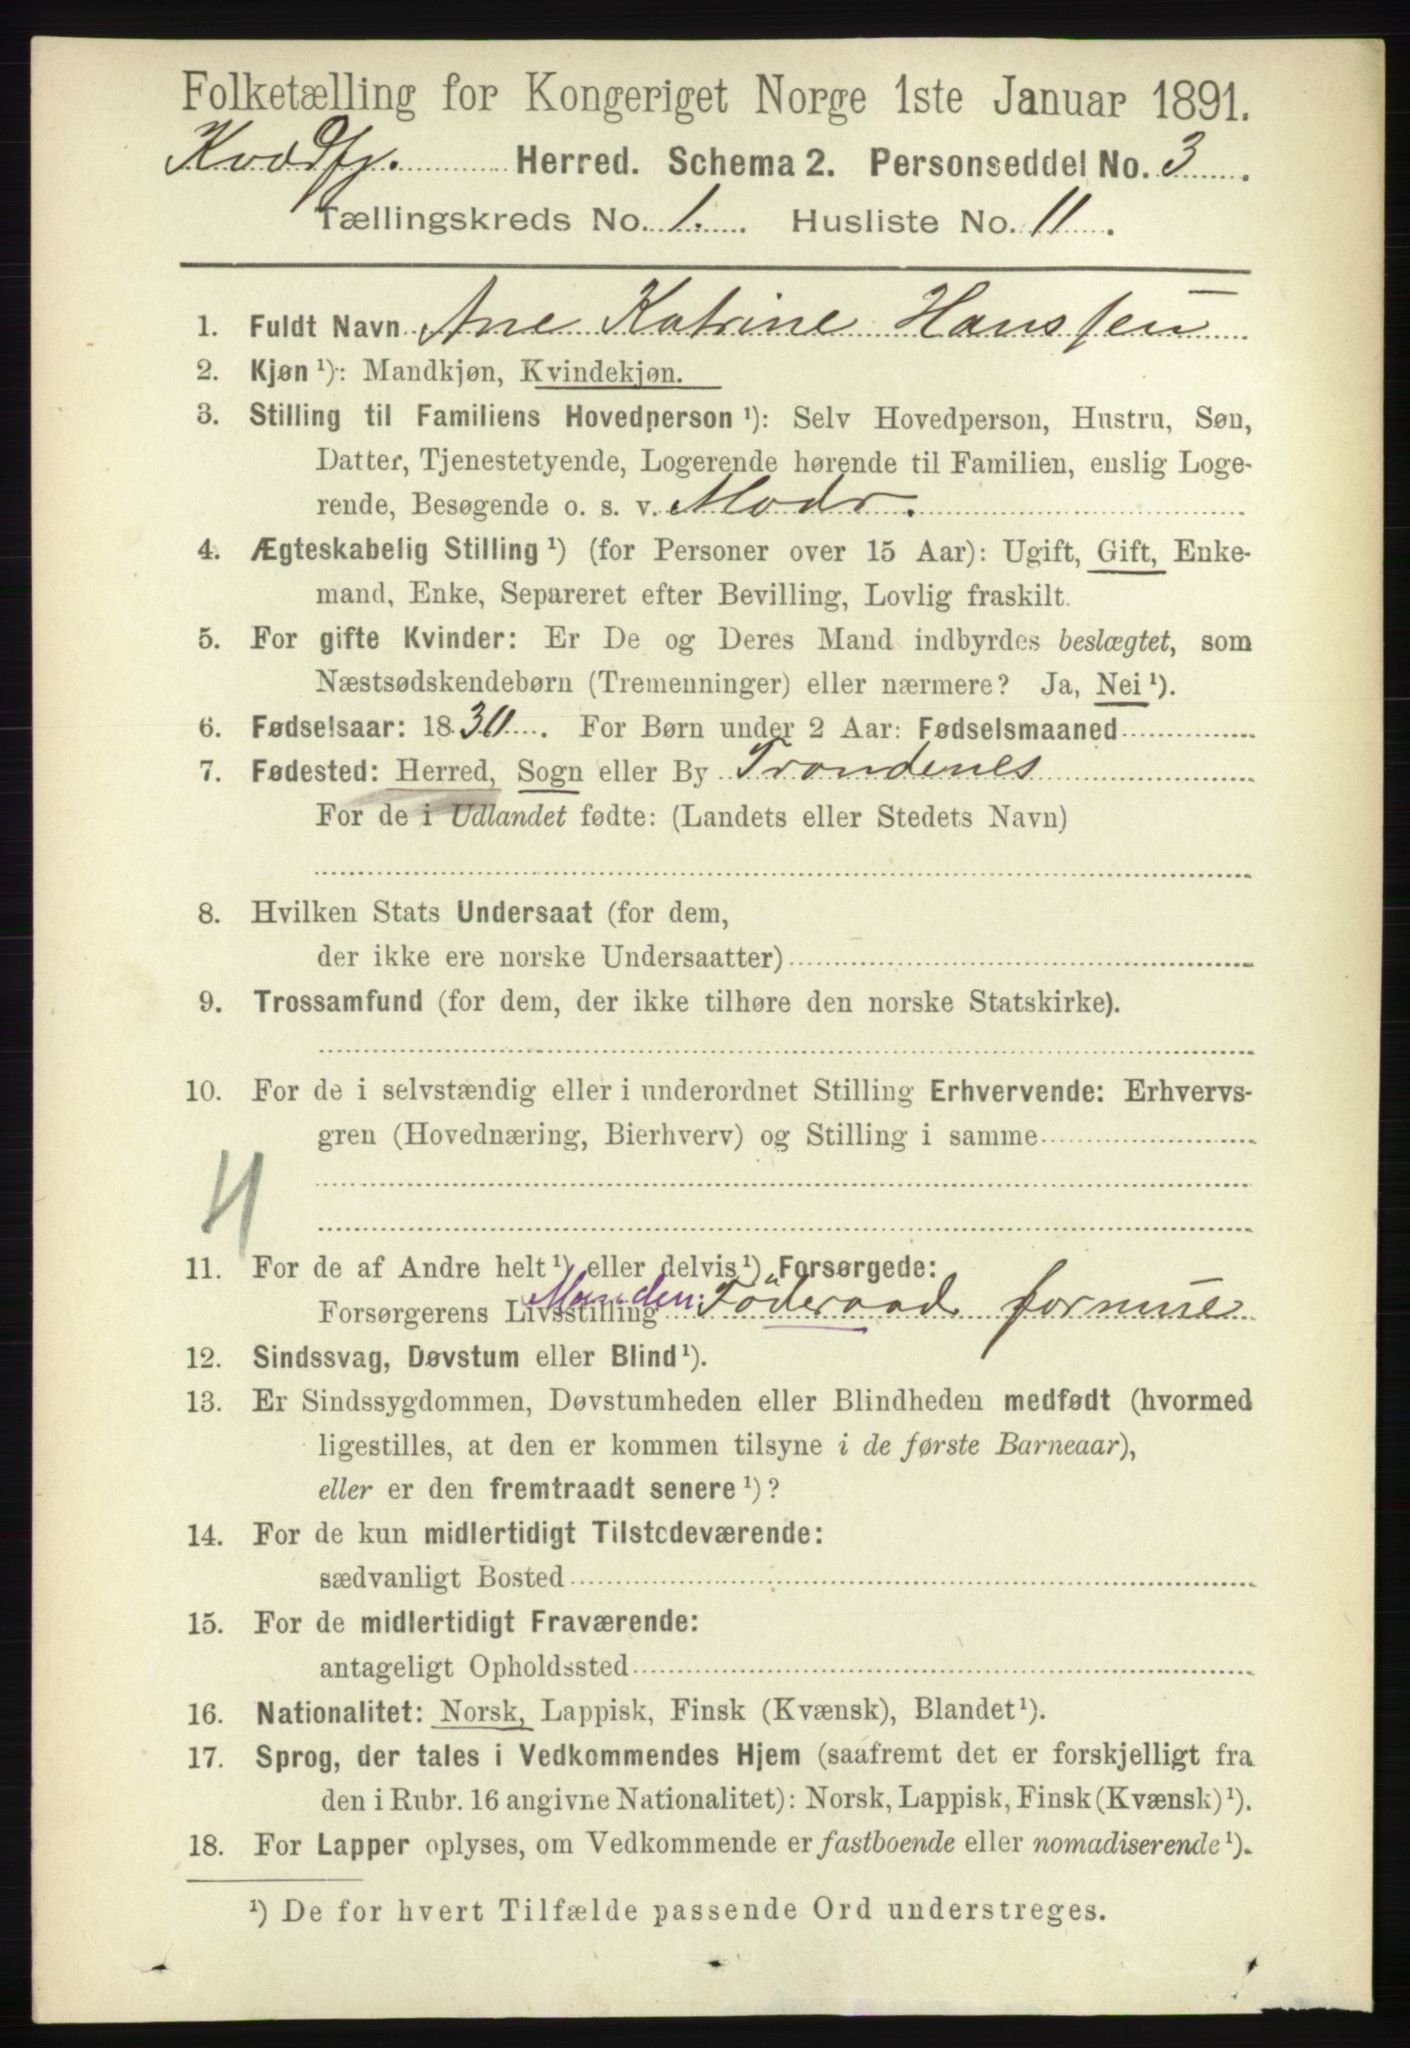 Folketælling for Kongeriget Norge 1ste Januar 1891.
Kvædfj. Herred. Schema 2. Personseddel No. 3
Tællingskreds No. 1. Husliste No. 11
1. Fuldt Navn Ane Katrine Hanssen
2. Kjøn ¹): Mandkjøn, Kvindekjøn.
3. Stilling til Familiens Hovedperson ¹): Selv Hovedperson, Hustru, Søn,
Datter, Tjenestetyende, Logerende hørende til Familien, enslig Loge-
rende, Besøgende o. s. v. Modr.
4. Ægteskabelig Stilling ¹) (for Personer over 15 Aar): Ugift, Gift, Enke-
mand, Enke, Separeret efter Bevilling, Lovlig fraskilt.
5. For gifte Kvinder: Er De og Deres Mand indbyrdes beslægtet, som
Næstsødskendebørn (Tremenninger) eller nærmere? Ja, Nei ¹).
6. Fødselsaar: 1830. For Børn under 2 Aar: Fødselsmaaned
7. Fødested: Herred, Sogn eller By Trondenes
For de i Udlandet fødte: (Landets eller Stedets Navn)
8. Hvilken Stats Undersaat (for dem,
der ikke ere norske Undersaatter)
9. Trossamfund (for dem, der ikke tilhøre den norske Statskirke).
10. For de i selvstændig eller i underordnet Stilling Erhvervende: Erhvervs-
gren (Hovednæring, Bierhverv) og Stilling i samme
4
11. For de af Andre helt ¹) eller delvis ¹) Forsørgede:
Forsørgerens Livsstilling Manden: Föderaad formue
12. Sindssvag, Døvstum eller Blind ¹).
13. Er Sindssygdommen, Døvstumheden eller Blindheden medfødt (hvormed
ligestilles, at den er kommen tilsyne i de første Barneaar),
eller er den fremtraadt senere ¹)?
14. For de kun midlertidigt Tilstedeværende:
sædvanligt Bosted
15. For de midlertidigt Fraværende:
antageligt Opholdssted
16. Nationalitet: Norsk, Lappisk, Finsk (Kvænsk), Blandet ¹).
17. Sprog, der tales i Vedkommendes Hjem (saafremt det er forskjelligt fra
den i Rubr. 16 angivne Nationalitet): Norsk, Lappisk, Finsk (Kvænsk) ¹).
18. For Lapper oplyses, om Vedkommende er fastboende eller nomadiserende ¹).
¹) De for hvert Tilfælde passende Ord understreges.